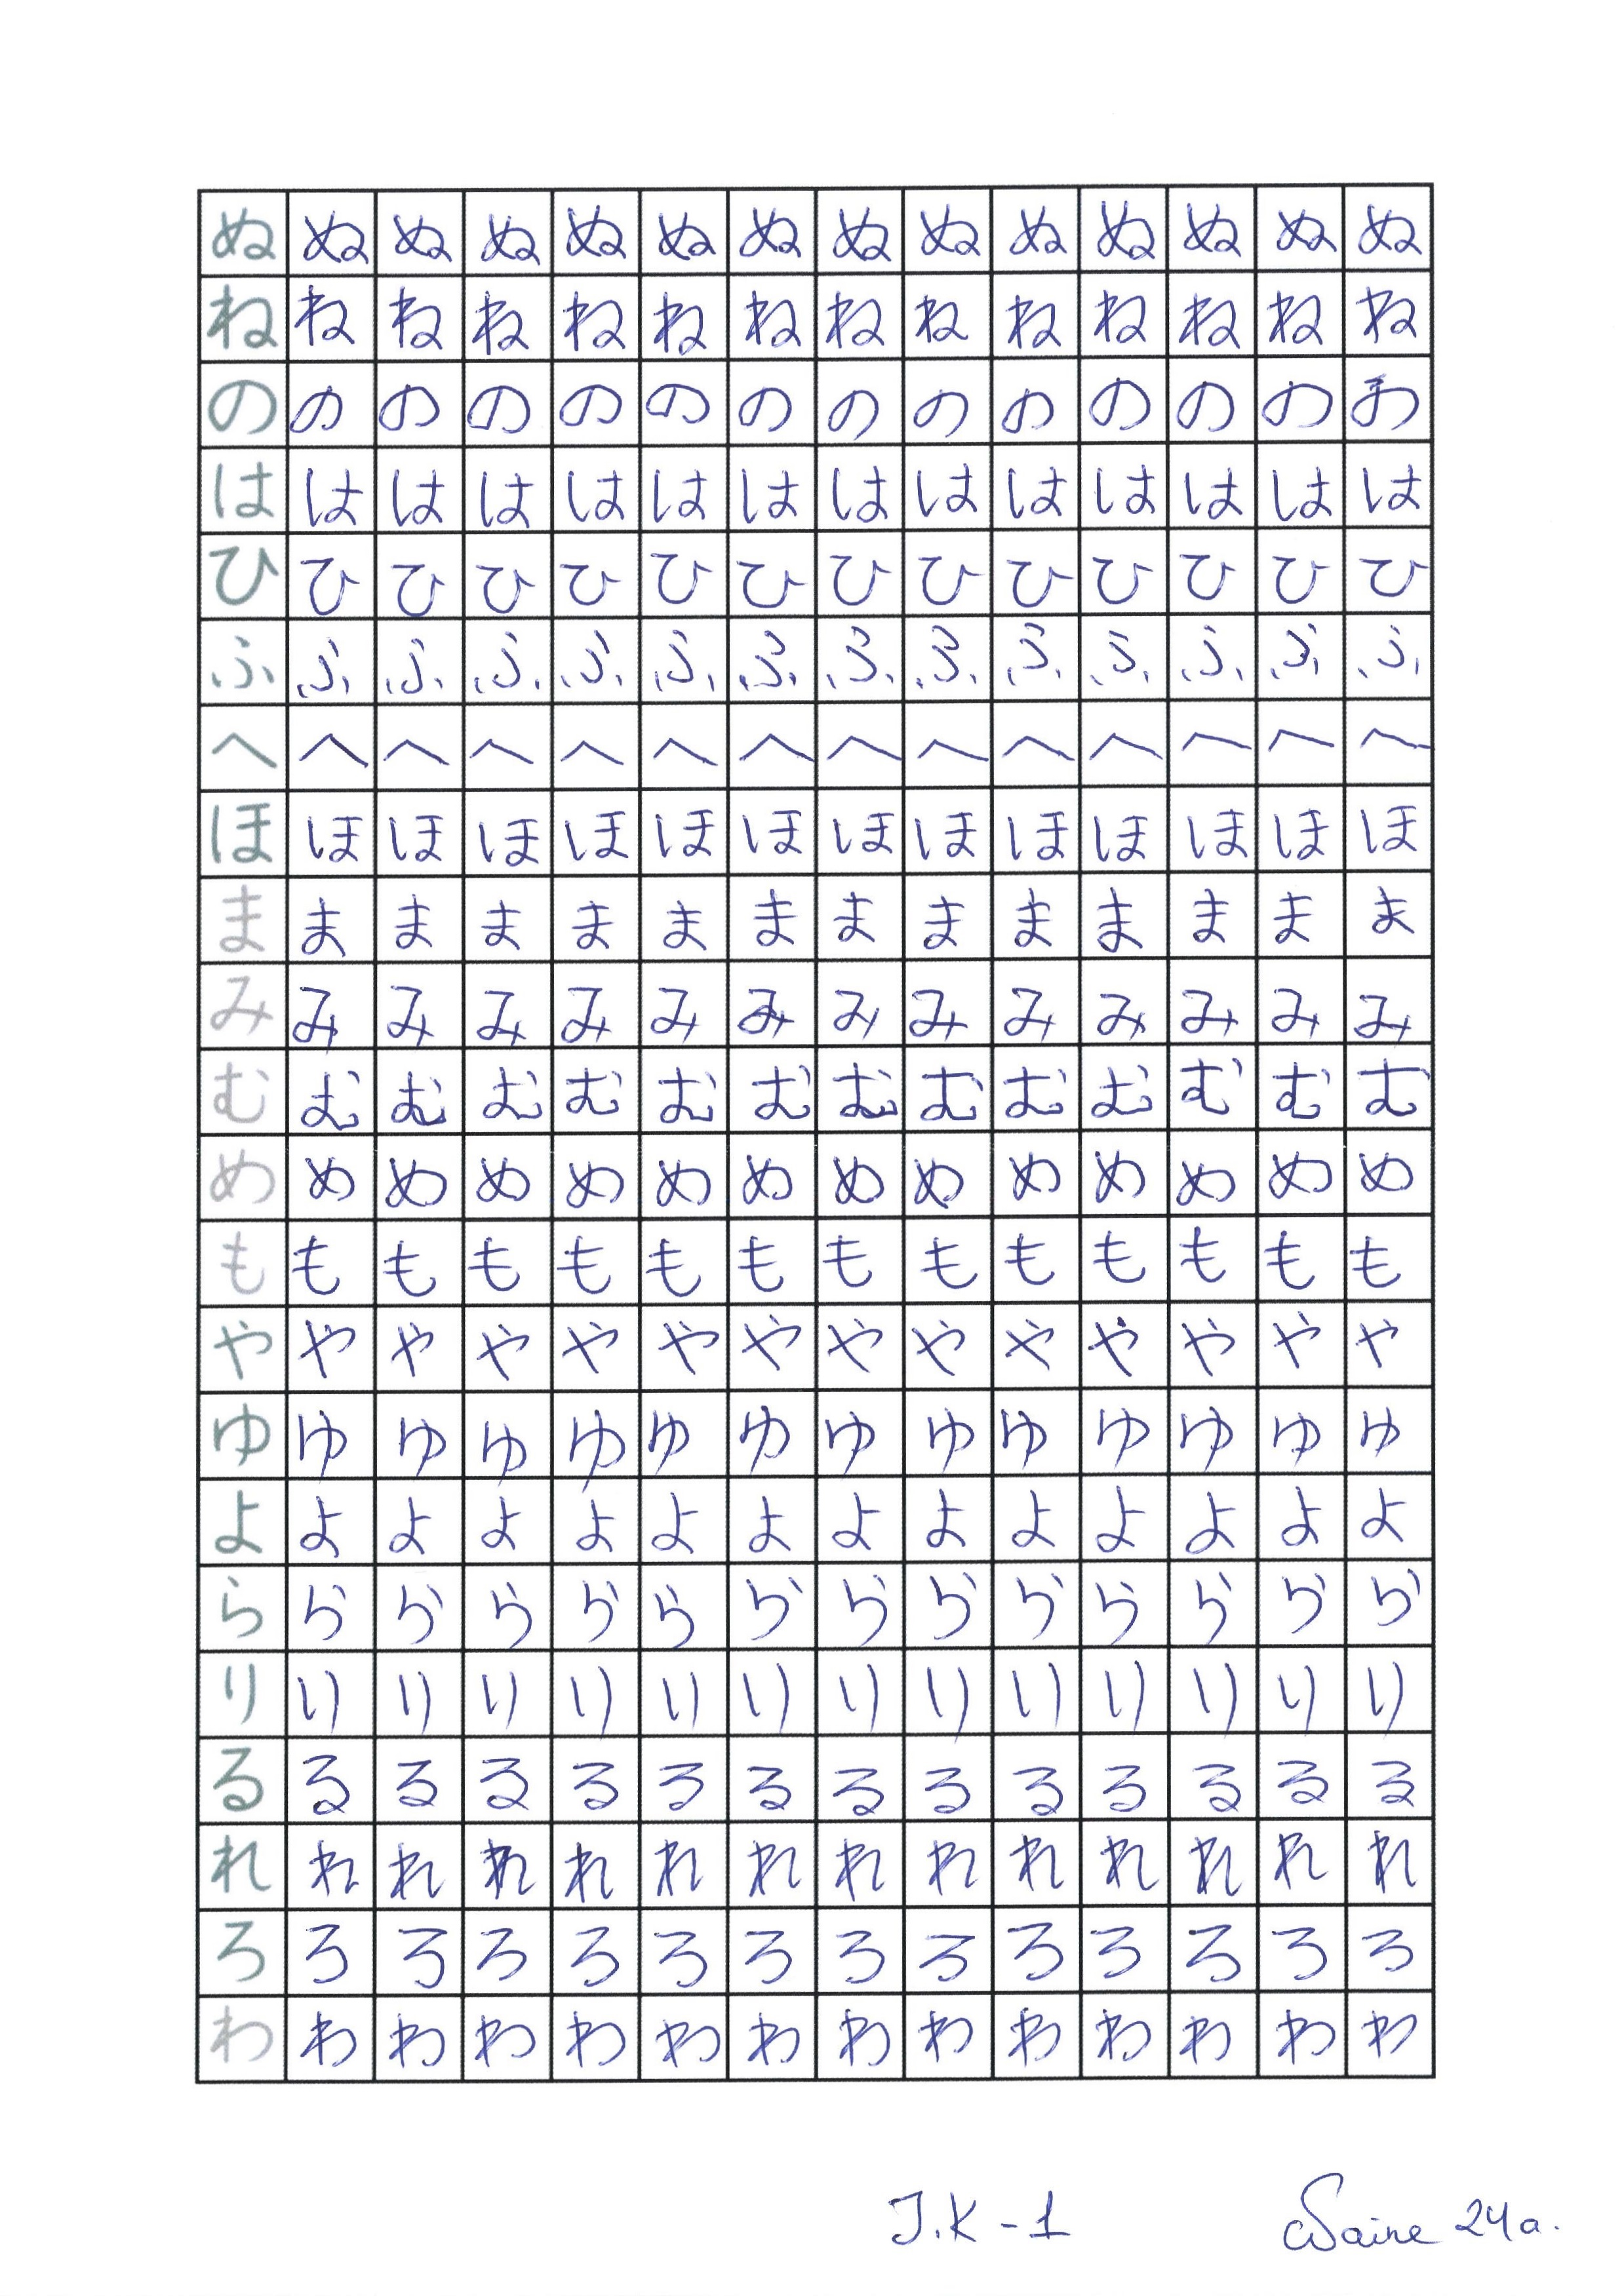 ぬ ぬ ぬ ぬ ぬ ぬ ぬ ぬ ぬ ぬ ぬ ぬ ぬ ぬ
ね ね ね ね ね ね ね ね ね ね ね ね ね ね
の の の の の の の の の の の の の
は は は は は は は は は は は は は は
ひ ひ ひ ひ ひ ひ ひ ひ ひ ひ ひ ひ ひ ひ
ふ ふ ふ ふ ふ ふ ふ ふ ふ ふ ふ ふ ふ ふ
へ へ へ へ へ へ へ へ へ へ へ へ へ へ
ほ ほ ほ ほ ほ ほ ほ ほ ほ ほ ほ ほ ほ ほ
ま ま ま ま ま ま ま ま ま ま ま ま ま ま
み み み み み み み み み み み み み み
む む む む む む む む む む む む む む
め め め め め め め め め め め め め め
も も も も も も も も も も も も も も
や や や や や や や や や や や や や や
ゆ ゆ ゆ ゆ ゆ ゆ ゆ ゆ ゆ ゆ ゆ ゆ ゆ ゆ
よ よ よ よ よ よ よ よ よ よ よ よ よ よ
ら ら ら ら ら ら ら ら ら ら ら ら ら ら
り り り り り り り り り り り り り り
る る る る る る る る る る る る る る
れ れ れ れ れ れ れ れ れ れ れ れ れ れ
ろ ろ ろ ろ ろ ろ ろ ろ ろ ろ ろ ろ ろ ろ
わ わ わ わ わ わ わ わ わ わ わ わ わ わ
J.K - 1 24a.